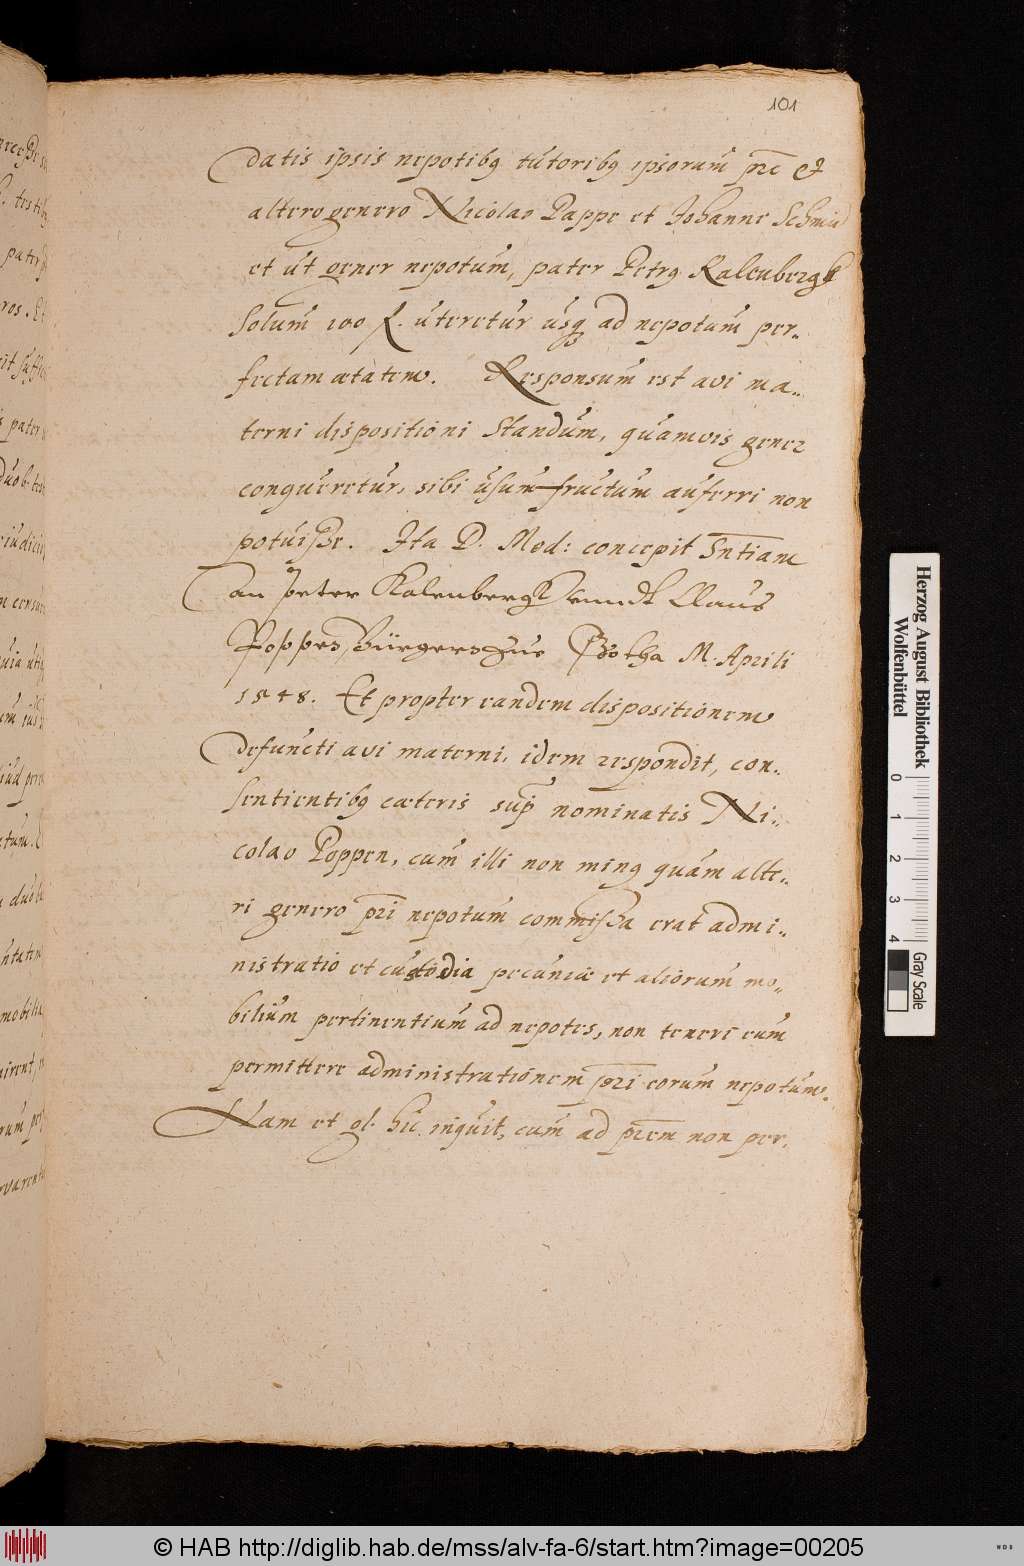 101
datis ipsis nepotibꝯ tutoribꝯ ipsorum pre et
altero genero Nicolao Pappe et Johanne Schmid
et ut gener nepotum, pater Petrꝯ Kalenbergk
solum 100 f. uteretur usqꝫ ad nepotum per-
fectam ætatem. Responsum est avi ma-
terni dispositioni standum, quamvis gener
conqueretur, sibi usum-fructum auferri non
potuiße. Ita D. Med: concepit Sntiam
an Peter Kalenbergk vnndt Claus
Poppes, Bürgers zue Gotha M. Aprili
1548. Et propter eandem dispositionem
defuncti avi materni, idem respondit, con-
sentientibꝯ cæteris sup nominatis Ni-
colao Poppen, cum illi non minꝯ quam alte-
ri genero pri nepotum commißa erat admi-
nistratio et custodia pecuniæ et aliorum mo-
bilium pertinentium ad nepotes, non teneri eum
permittere administrationem pri eorum nepotum.
Nam et gl. hic inquit, cum ad prem non per-
Herzog August Bibliothek
Wolfenbüttel
0 1 2 3 4
Gray Scale
© HAB http://diglib.hab.de/mss/alv-fa-6/start.htm?image=00205